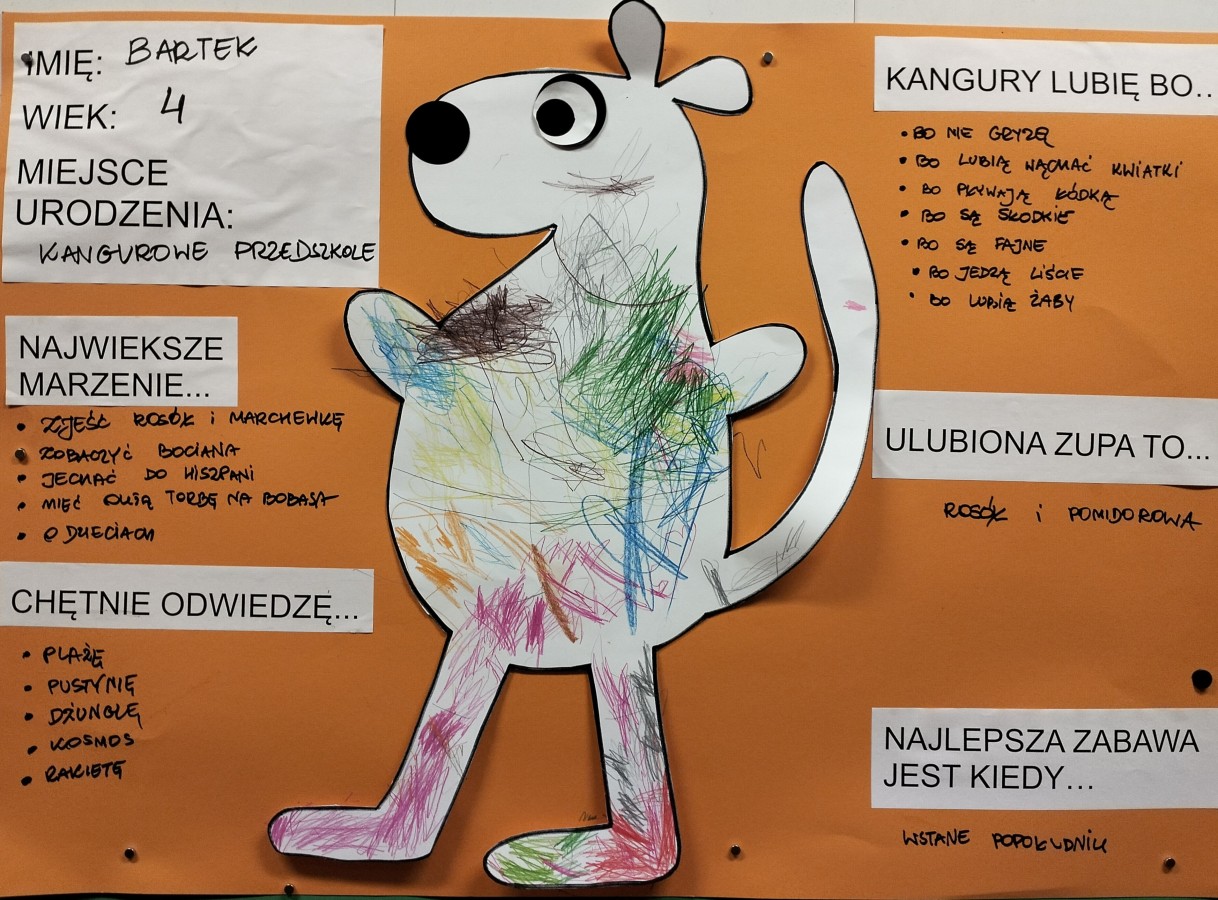 IMIĘ: BARTEK
WIEK: 4
MIEJSCE
URODZENIA:
KANGUROWE PRZEDSZKOLE
NAJWIEKSZE
MARZENIE...
• ZJEŚĆ ROSÓŁ i MARCHEWKĘ
• ZOBACZYĆ BOCIANA
• JECHAĆ DO HISZPANI
• MIEĆ DUŻĄ TORBĘ NA BOBASA
• O DZIECIACH
CHĘTNIE ODWIEDZĘ...
• PLAŻĘ
• PUSTYNIĘ
• DŻUNGLĘ
• KOSMOS
• RAKIETĘ
KANGURY LUBIĘ BO...
• BO NIE GRYZĘ
• BO LUBIĄ WĄCHAĆ KWIATKI
• BO PŁYWAJĄ ŁÓDKĄ
• BO SĄ SŁODKIE
• BO SĄ FAJNE
• BO JEDZĄ LIŚCIE
• BO LUBIĄ ŻABY
ULUBIONA ZUPA TO...
ROSÓŁ i POMIDOROWA
NAJLEPSZA ZABAWA
JEST KIEDY...
WSTANE POPOŁUDNIU